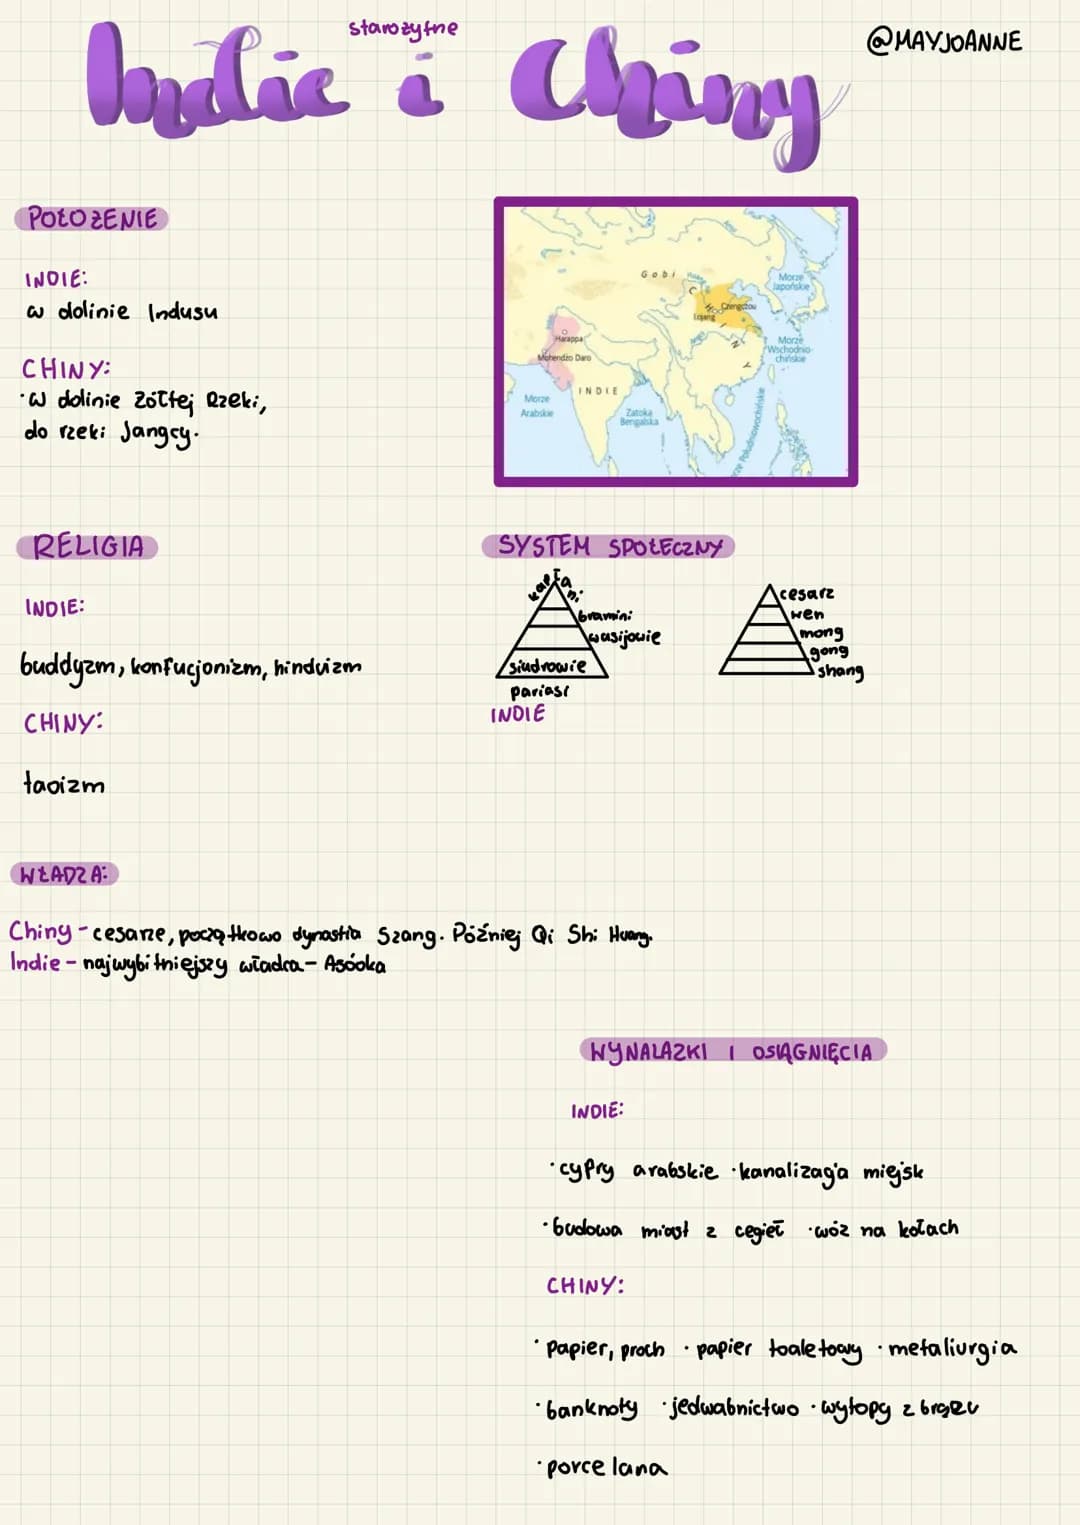 starożytne
Indie i Chiny
@MAYJOANNE
POŁOŻENIE
INDIE:
w dolinie Indusu
CHINY:
·W dolinie Żółtej Rzeki,
do rzeki Jangcy.
Gobi
Huang
CHINY
Czengczou
Lojang
Morze
Japońskie
Morze
Wschodnio-
chińskie
Harappa
Mohendżo Daro
INDIE
Morze
Arabskie
Zatoka
Bengalska
rze Południowochińskie
RELIGIA
INDIE:
buddyzm, konfucjonizm, hinduizm
CHINY:
taoizm
SYSTEM SPOŁECZNY
kapłani
bramini
wasijowie
siudrowie
pariasi
INDIE
cesarz
wen
mong
gong
shang
WŁADZA:
Chiny - cesarze, początkowo dynastia Szang. Później Qi Shi Huang.
Indie - najwybitniejszy władca - Asóoka
WYNALAZKI I OSIĄGNIĘCIA
INDIE:
·cyfry arabskie ·kanalizacja miejsk
·budowa miast z cegieł ·wóz na kołach
CHINY:
·papier, proch ·papier toaletowy ·metaliurgia
·banknoty ·jedwabnictwo ·wytopy z brązu
·porcelana